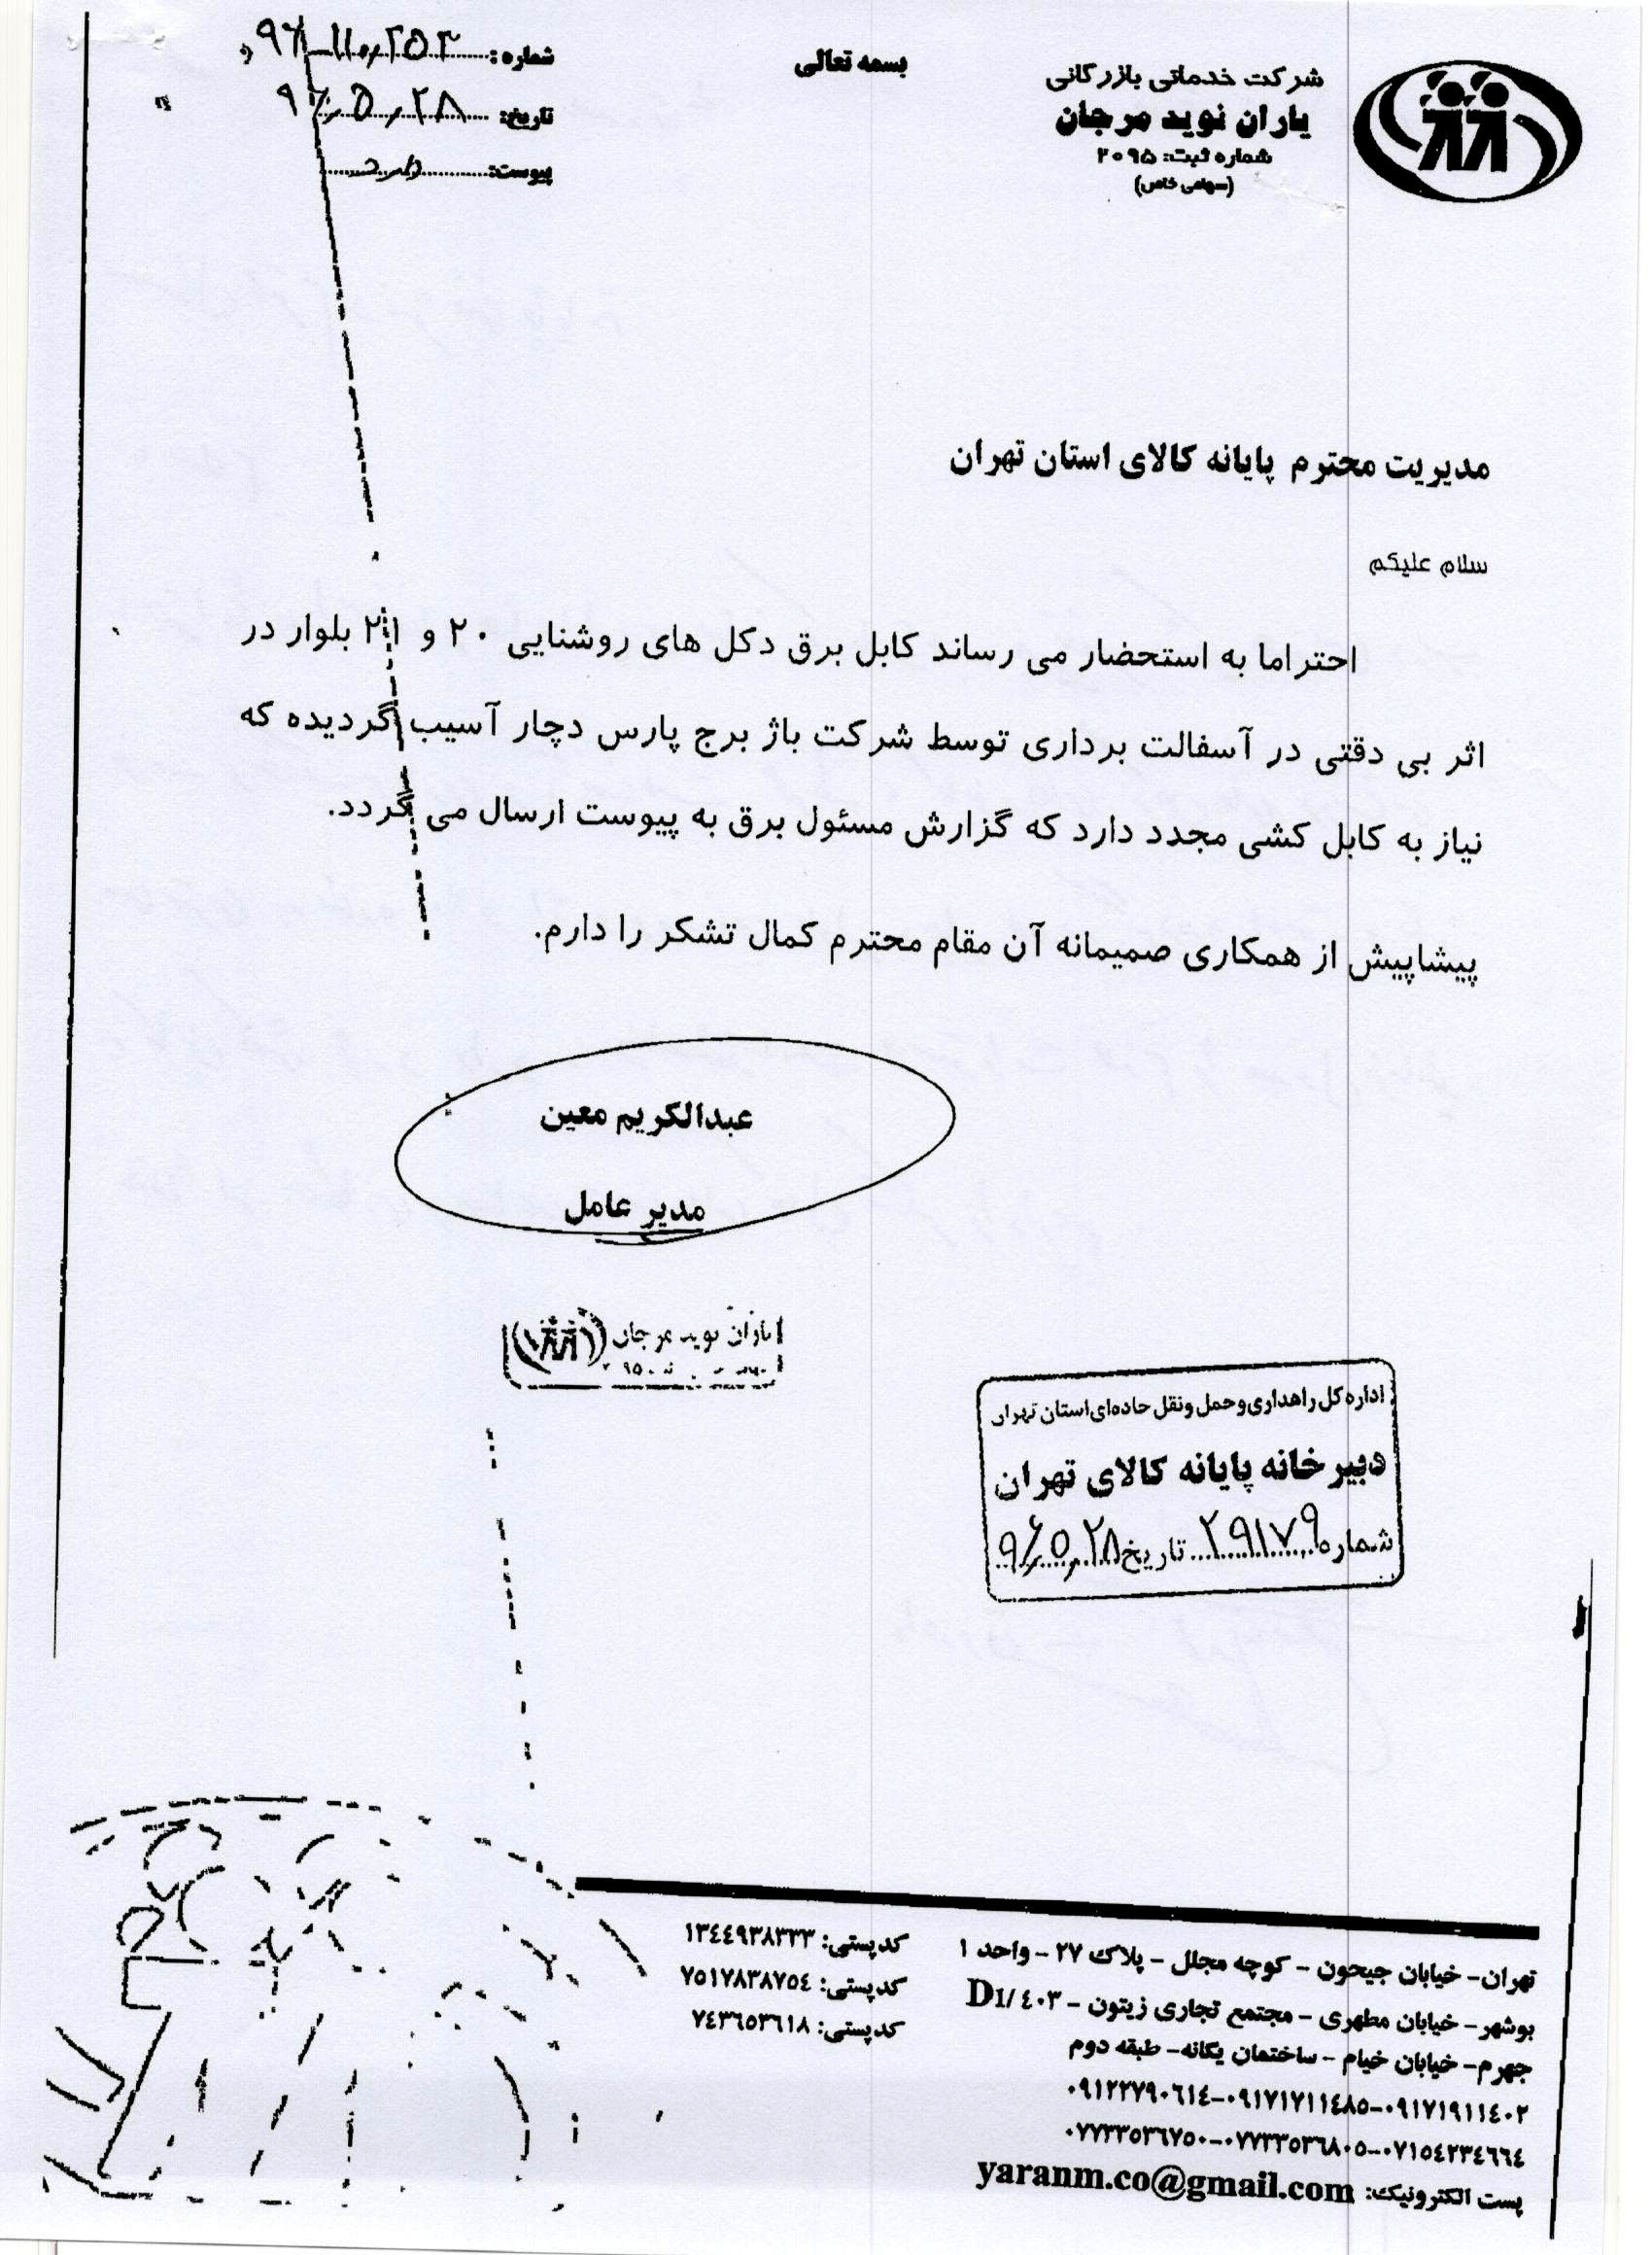 بسمه تعالی
شرکت خدماتی بازرگانی
یاران نوید مرجان
شماره ثبت: ۲۰۹۵
(سهامی خاص)
شماره:
تاریخ: ۹۶٫۵٫۲۸
پیوست: دارد
مدیریت محترم پایانه کالای استان تهران
سلام علیکم
احتراما به استحضار می رساند کابل برق دکل های روشنایی ۲۰ و ۲۱ بلوار در
اثر بی دقتی در آسفالت برداری توسط شرکت باژ برج پارس دچار آسیب گردیده که
نیاز به کابل کشی مجدد دارد که گزارش مسئول برق به پیوست ارسال می گردد.
پیشاپیش از همکاری صمیمانه آن مقام محترم کمال تشکر را دارم.
عبدالکریم معین
مدیر عامل
یاران نوید مرجان
اداره کل راهداری و حمل و نقل جاده‌ای استان تهران
دبیرخانه پایانه کالای تهران
شماره ۲۹۱۷۹ تاریخ ۹۶٫۵٫۲۸
تهران- خیابان جیحون - کوچه مجلل - پلاک ۲۷ - واحد ۱ کدپستی: ۱۳٤٤۹۳۸۳۳۳
بوشهر- خیابان مطهری - مجتمع تجاری زیتون - D1/٤۰۳ کدپستی: ۷۵۱۷۸۳۸۷۵٤
جهرم- خیابان خیام - ساختمان یگانه- طبقه دوم کدپستی: ۷٤۳٦۵۳٦۱۸
۰۹۱۷۱۹۱۱٤۰۲-۰۹۱۷۱۷۱۱٤۸۵-۰۹۱۲۲۷۹۰٦۱٤
۰۷۱۵٤۲۳٤٦٦٤-۰۷۷۳۳۵۳٦۸۰۵-۰۷۷۳۳۵۳٦۷۵۰
پست الکترونیک: yaranm.co@gmail.com